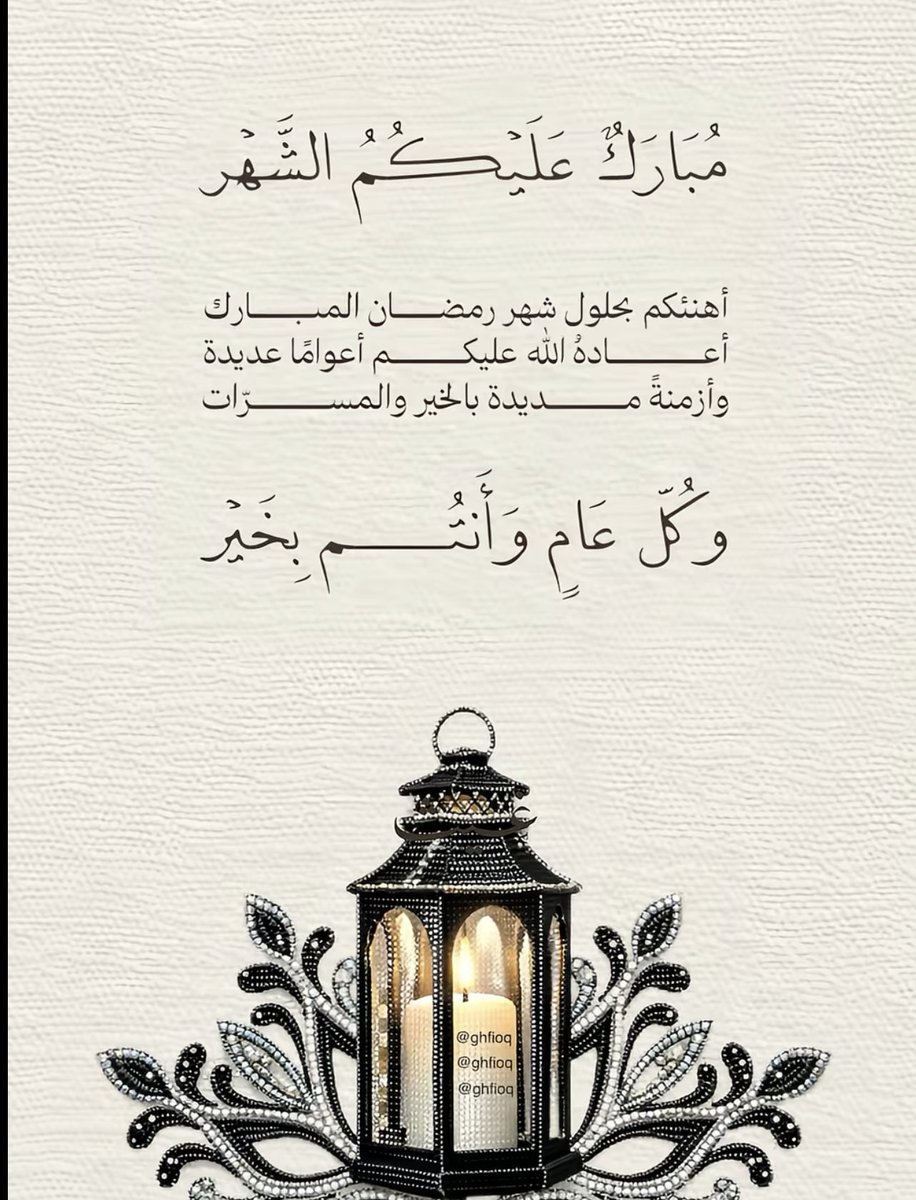 مُبَارَكٌ عَلَيْكُمُ الشَّهْر
أهنئكم بحلول شهر رمضـــان المبــــارك
أعـــــــادهُ الله عليكـــــــم أعوامًا عديدة
وأزمنةً مـــــــديدة بالخير والمســـــــرّات
وكُلّ عَامٍ وَأَنتُـــــــم بِخَيْر
@ghfioq
@ghfioq
@ghfioq